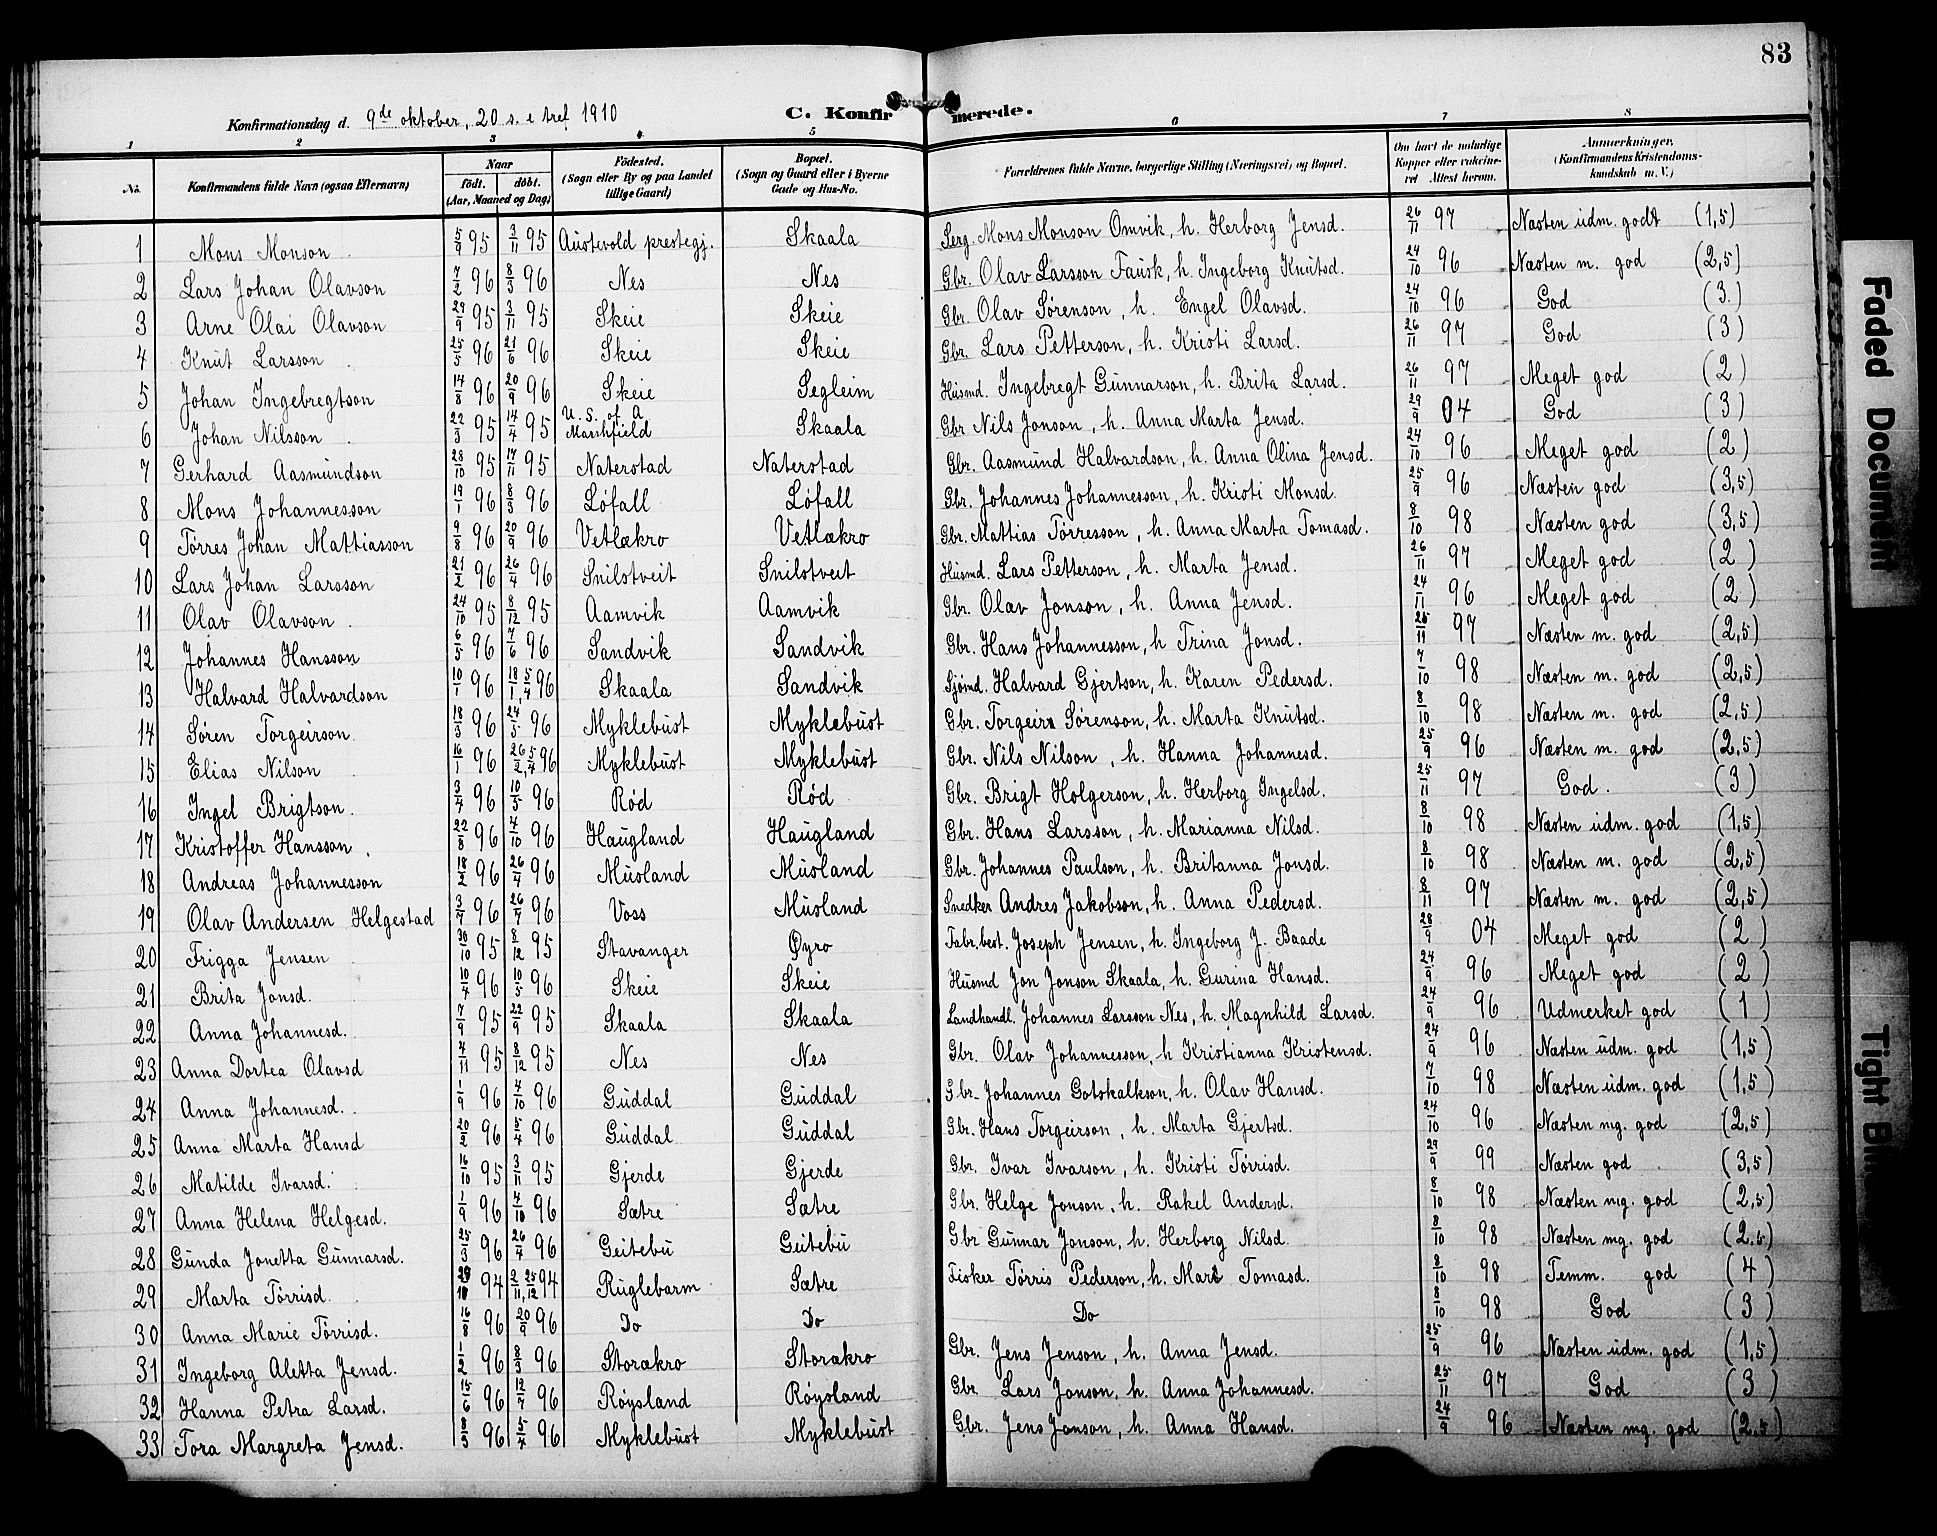 83
Konfirmationsdag d. 9de oktober, 20 s. e tref 1910 C. Konfirmerede.
1 2 3 4 5 6 7 8
No. Konfirmandens fulde Navn (ogsaa Efternavn) Naar født. døbt. (Aar, Maaned og Dag) Fødested. (Sogn eller By og paa Landet tillige Gaard) Bopæl. (Sogn og Gaard eller i Byerne Gade og Hus-No. Forældrenes fulde Navne, borgerlige Stilling (Næringsvei) og Bopæl. Om havt de naturlige Kopper eller vakcineret Attest herom. Anmærkninger. (Konfirmandens Kristendomskundskab m. V.)
1 Mons Monson 5/9 95 3/11 95 Austevold prestegj. Skaala Serg. Mons Monson Omvik, h. Herborg Jensd. 26/11 97 Næsten udm. godt (1,5)
2 Lars Johan Olavson 7/2 96 8/3 96 Nes Nes Gbr. Olav Larsson Fausk, h. Ingeborg Knutsd. 24/10 96 Næsten m. god (2,5)
3 Arne Olai Olavson 29/9 95 3/11 95 Skeie Skeie Gbr. Olav Sørenson, h. Engel Olavsd. 24/10 96 God (3.)
4 Knut Larsson 25/5 96 21/6 96 Skeie Skeie Gbr. Lars Petterson, h. Kristi Larsd. 26/11 97 God (3)
5 Johan Ingebregtson 14/8 96 20/9 96 Skeie Segleim Husmd. Ingebregt Gunnarson, h. Brita Larsd. 26/11 97 Meget god (2)
6 Johan Nilsson 22/3 95 14/4 95 U. S. of A Marshfield Skaala Gbr Nils Jonson, h. Anna Marta Jensd. 29/9 04 God (3)
7 Gerhard Aasmundson 28/10 95 17/11 95 Naterstad Naterstad Gbr. Aasmund Halvardson, h. Anna Olina Jensd. 24/10 96 Meget god (2)
8 Mons Johannesson 19/1 96 8/3 96 Løfall Løfall Gbr. Johannes Johannesson, h. Kristi Monsd. 25/9 96 Næsten god (3,5)
9 Tørres Johan Mattiasson 9/8 96 20/9 96 Vetlækro Vetlækro Gbr. Mattias Tørresson, h. Anna Marta Tomasd. 8/10 98 Næsten god (3,5)
10 Lars Johan Larsson 21/2 96 26/4 96 Snilstveit Snilstveit Husmd. Lars Petterson, h. Marta Jensd. 26/11 97 Meget god (2)
11 Olav Olavson 24/10 95 8/12 95 Aamvik Aamvik Gbr. Olav Jonson, h. Anna Jensd. 24/11 96 Meget god (2)
12 Johannes Hansson 6/5 96 7/6 96 Sandvik Sandvik Gbr. Hans Johannesson, h Trina Jonsd. 25/11 97 Næsten m. god (2,5)
13 Halvard Halvardson 10/1 96 18/1, 5/4 96 Skaala Sandvik Sjømd. Halvard Gjertson, h. Karen Pedersd. 7/10 98 Næsten m. god (2,5)
14 Søren Torgeirson 18/3 96 24/5 96 Myklebust Myklebust Gbr. Torgeir Sørenson, h. Marta Knutsd. 8/10 98 Næsten m. god (2,5)
15 Elias Nilson 16/1 96 26/2, 5/4 96 Myklebust Myklebust Gbr. Nils Nilson, h. Hanna Johannesd. 25/9 96 Næsten m. god (2,5)
16 Ingel Brigtson. 3/4 96 10/5 96 Rød Rød Gbr. Brigt Holgerson, h. Herborg Ingelsd. 25/11 97 God. (3)
17 Kristoffer Hansson. 22/8 96 4/10 96 Haugland Haugland Gbr. Hans Larsson, h. Marianna Nilsd. 8/10 98 Næsten udm. god (1,5)
18 Andreas Johannesson 18/2 96 26/4 96 Musland Musland Gbr. Johannes Paulson, h. Britanna Jonsd. 8/10 98 Næsten m. god (2,5)
19 Olav Andersen Helgestad 3/7 96 26/7 96 Voss Musland Snedker Andres Jakobson, h. Anna Pedersd. 8/11 97 Næsten m. god (2,5)
20 Frigga Jensen 30/10 95 8/12 95 Stavanger Øyro Fabr.best. Joseph Jensen, h. Ingeborg J. Baade 28/9 04 Meget god (2)
21 Brita Jonsd. 10/4 96 10/5 96 Skeie Skeie Husmd Jon Jonson Skaala, h. Gurina Hansd. 24/9 96 Meget god (2)
22 Anna Johannesd. 7/9 95 22/9 95 Skaala Skaala Landhandl. Johannes Larsson Nes, h. Magnhild Larsd. 24/9 96 Udmerket god (1)
23 Anna Dortea Olavsd 4/11 95 8/12 95 Nes Nes Gbr. Olav Johannesson, h Kristianna Kristensd. 24/9 96 Næsten udm. god (1,5)
24 Anna Johannesd. 1/9 96 4/10 96 Guddal Guddal Gbr. Johannes Gotskalkson, h. Olav Hansd. 7/10 98 Næsten udm. god (1,5)
25 Anna Marta Hansd 20/2 96 5/4 96 Guddal Guddal Gbr. Hans Torgeirson, h. Marta Gjertsd. 24/10 96 Næsten mg. god (2,5)
26 Matilde Ivarsd. 16/10 95 3/11 95 Gjerde Gjerde Gbr. Ivar Ivarson, h. Kristi Tørrisd. 29/9 99 Næsten god (3,5)
27 Anna Helena Helgesd. 1/9 96 4/10 96 Sætre Sætre Gbr. Helge Jonson, h. Rakel Andersd. 8/10 98 Næsten mg. god (2,5)
28 Gunda Jonetta Gunnarsd. 25/3 96 26/4 96 Geitebu Geitebu Gbr Gunnar Jonson, h. Herborg Nilsd. 8/10 98 Næsten mg. god (2,5)
29 Marta Tørrisd. 29/10 94 2/11, 25/12 94 Ruglebarm Sætre Fisker Tørris Pederson, h. Mart Tomasd. 8/10 98 Temm. god (4)
30 Anna Marie Tørrisd. 16/8 96 20/9 96 Do Do Do 8/10 98 God (3)
31 Ingeborg Aletta Jensd. 1/2 96 8/3 96 Storækro Storækro Gbr. Jens Jenson, h. Anna Jensd. 25/9 96 Næsten udm. god (1,5)
32 Hanna Petra Larsd. 15/6 96 12/7 96 Røysland Røysland Gbr Lars Jonson, h. Anna Johannesd. 25/11 97 God (3)
33 Tora Margreta Jensd. 8/3 96 5/4 96 Myklebust Myklebust Gbr. Jens Jonson, h. Anna Hansd. 24/9 96 Næsten mg. god (2,5)
Faded Document
Tight